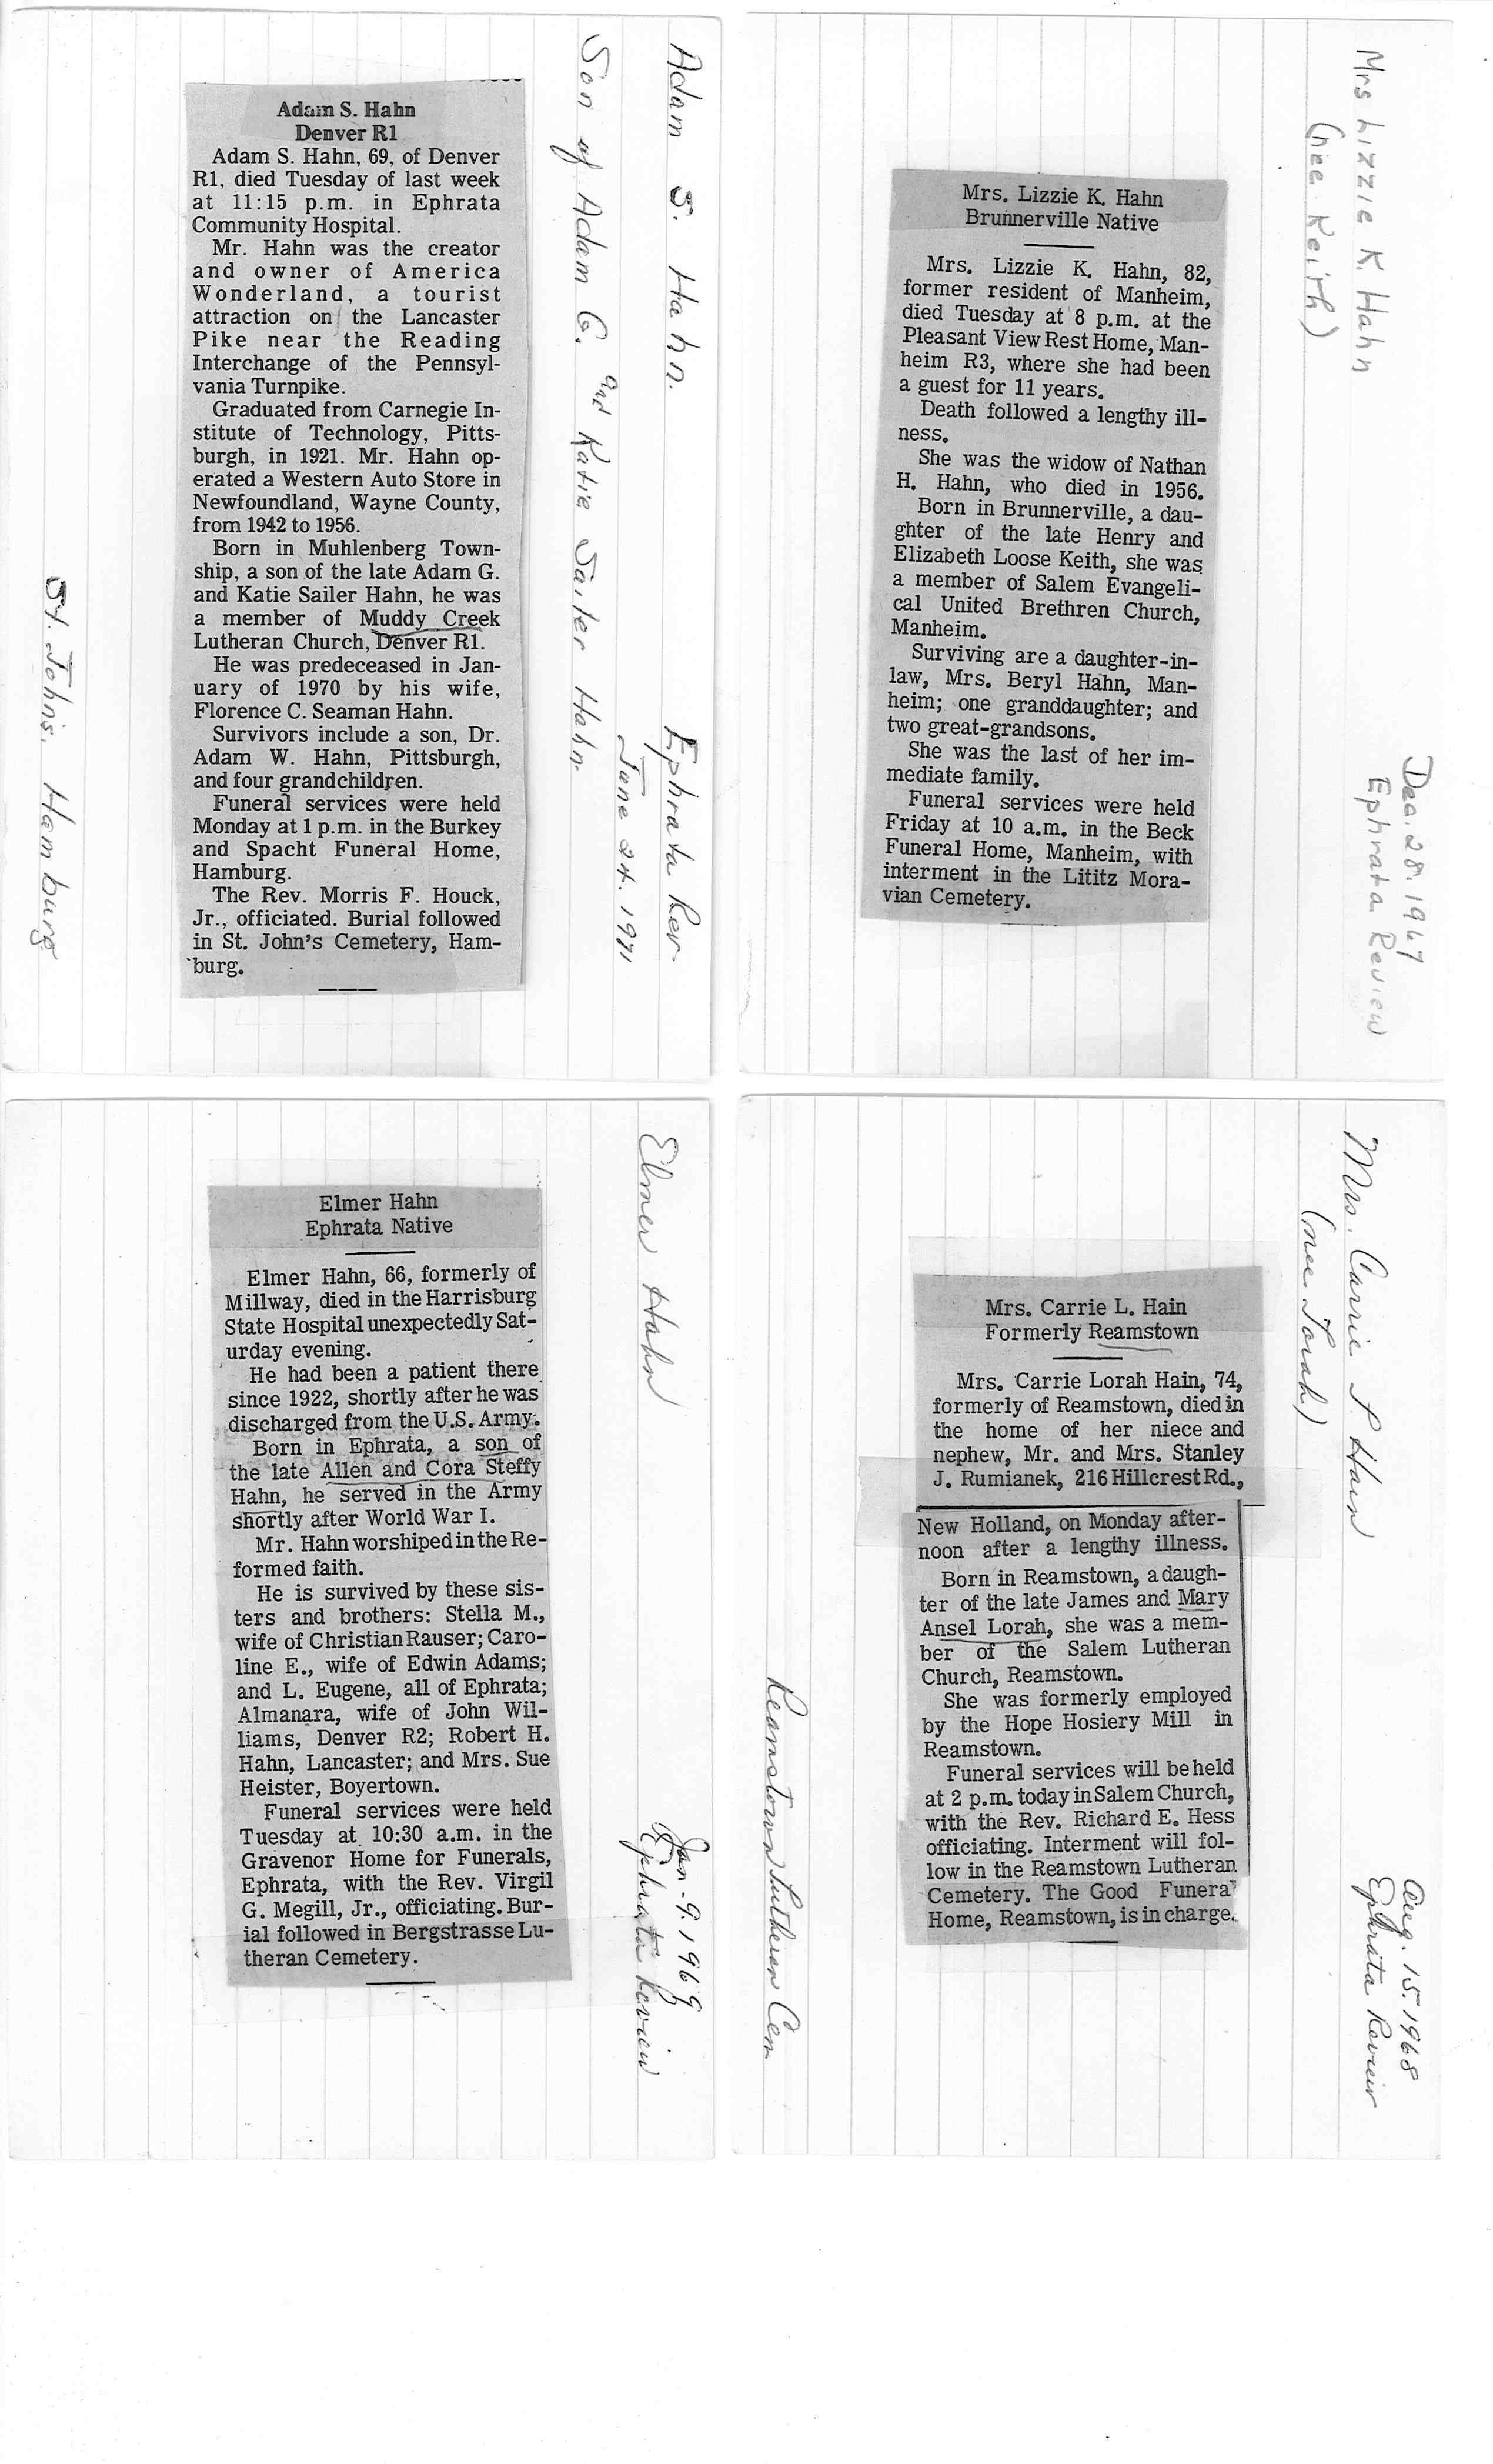 Adam S. Hahn
Denver R1
Adam S. Hahn, 69, of Denver
R1, died Tuesday of last week
at 11:15 p.m. in Ephrata
Community Hospital.
Mr. Hahn was the creator
and owner of America
Wonderland, a tourist
attraction on the Lancaster
Pike near the Reading
Interchange of the Pennsyl-
vania Turnpike.
Graduated from Carnegie In-
stitute of Technology, Pitts-
burgh, in 1921. Mr. Hahn op-
erated a Western Auto Store in
Newfoundland, Wayne County,
from 1942 to 1956.
Born in Muhlenberg Town-
ship, a son of the late Adam G.
and Katie Sailer Hahn, he was
a member of Muddy Creek
Lutheran Church, Denver R1.
He was predeceased in Jan-
uary of 1970 by his wife,
Florence C. Seaman Hahn.
Survivors include a son, Dr.
Adam W. Hahn, Pittsburgh,
and four grandchildren.
Funeral services were held
Monday at 1 p.m. in the Burkey
and Spacht Funeral Home,
Hamburg.
The Rev. Morris F. Houck,
Jr., officiated. Burial followed
in St. John's Cemetery, Ham-
burg.
Adam S. Hahn.
Ephrata Rev.
June 24. 1971
Son of Adam G. and Katie Sailer Hahn
St. John's. Hamburg
Mrs. Lizzie K. Hahn
Brunnerville Native
Mrs. Lizzie K. Hahn, 82,
former resident of Manheim,
died Tuesday at 8 p.m. at the
Pleasant View Rest Home, Man-
heim R3, where she had been
a guest for 11 years.
Death followed a lengthy ill-
ness.
She was the widow of Nathan
H. Hahn, who died in 1956.
Born in Brunnerville, a dau-
ghter of the late Henry and
Elizabeth Loose Keith, she was
a member of Salem Evangeli-
cal United Brethren Church,
Manheim.
Surviving are a daughter-in-
law, Mrs. Beryl Hahn, Man-
heim; one granddaughter; and
two great-grandsons.
She was the last of her im-
mediate family.
Funeral services were held
Friday at 10 a.m. in the Beck
Funeral Home, Manheim, with
interment in the Lititz Mora-
vian Cemetery.
Mrs Lizzie K. Hahn
(nee Keith)
Dec. 28. 1967
Ephrata Review
Elmer Hahn
Ephrata Native
Elmer Hahn, 66, formerly of
Millway, died in the Harrisburg
State Hospital unexpectedly Sat-
urday evening.
He had been a patient there
since 1922, shortly after he was
discharged from the U.S. Army.
Born in Ephrata, a son of
the late Allen and Cora Steffy
Hahn, he served in the Army
shortly after World War I.
Mr. Hahn worshiped in the Re-
formed faith.
He is survived by these sis-
ters and brothers: Stella M.,
wife of Christian Rauser; Caro-
line E., wife of Edwin Adams;
and L. Eugene, all of Ephrata;
Almanara, wife of John Wil-
liams, Denver R2; Robert H.
Hahn, Lancaster; and Mrs. Sue
Heister, Boyertown.
Funeral services were held
Tuesday at 10:30 a.m. in the
Gravenor Home for Funerals,
Ephrata, with the Rev. Virgil
G. Megill, Jr., officiating. Bur-
ial followed in Bergstrasse Lu-
theran Cemetery.
Elmer Hahn
Jan. 9. 1969
Ephrata Review
Mrs. Carrie L. Hain
Formerly Reamstown
Mrs. Carrie Lorah Hain, 74,
formerly of Reamstown, died in
the home of her niece and
nephew, Mr. and Mrs. Stanley
J. Rumianek, 216 Hillcrest Rd.,
New Holland, on Monday after-
noon after a lengthy illness.
Born in Reamstown, a daugh-
ter of the late James and Mary
Ansel Lorah, she was a mem-
ber of the Salem Lutheran
Church, Reamstown.
She was formerly employed
by the Hope Hosiery Mill in
Reamstown.
Funeral services will be held
at 2 p.m. today in Salem Church,
with the Rev. Richard E. Hess
officiating. Interment will fol-
low in the Reamstown Lutheran
Cemetery. The Good Funeral
Home, Reamstown, is in charge.
Mrs. Carrie L Hain
(nee Lorah)
Aug. 15. 1968
Ephrata Review
Reamstown Lutheran Cem